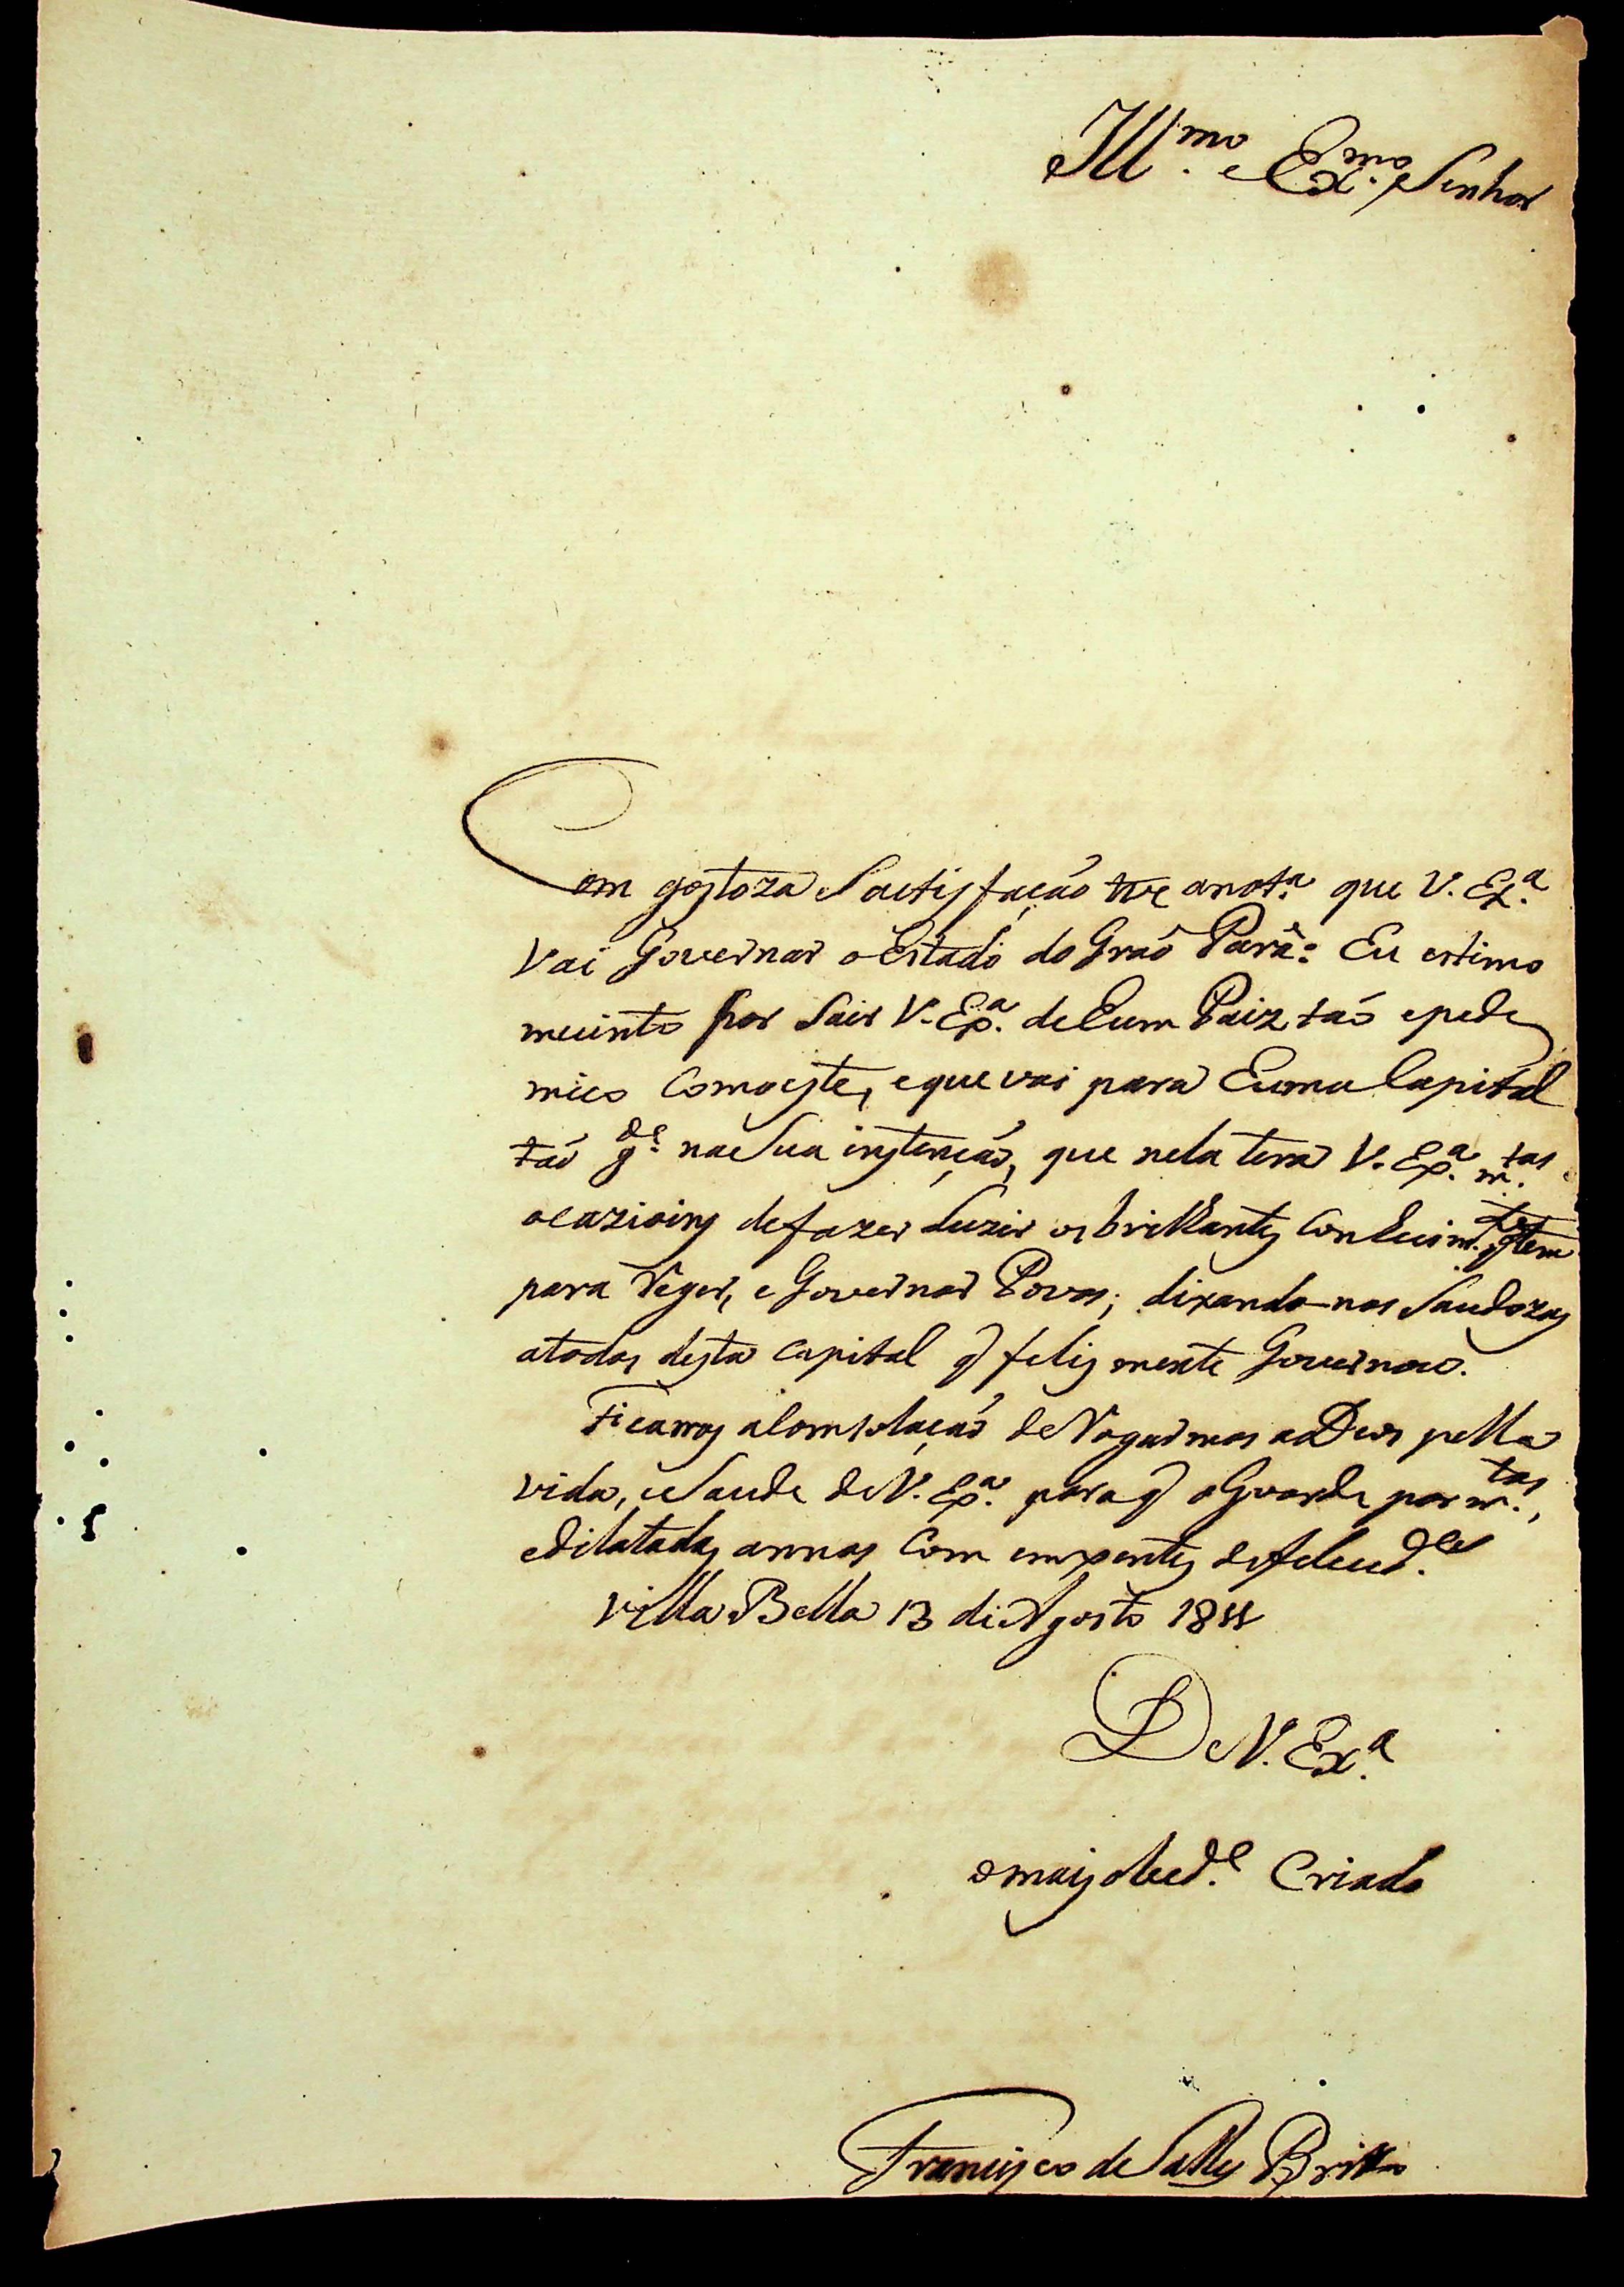 Ill.mo e Ex.mo Senhor
Com gostoza Sactisfação tive anot.a que V. Ex.a
Vai Governar o Estado do Graõ Parâ: Eu estimo
muinto por Sair V. Ex.a de hum Paiz taõ epede
mico Comoeste, eque vai para huma Capital
taõ g.de na Sua instençaõ, que nela tera V. Ex.a m.tas
ocazioins defazer Luzir os brilhantes Conhecim.tos q tem
para Reger, e Governar Povos; dixando-nos Saudozos
atodos desta Capital q felismente Governou.
Ficamos aComsolaçaõ de Rogarmos a Deos pella
vida, e Saude de V. Ex.a para q o Guarde por m.tos,
edilatados annos Com emxentes de felecid.es
Villa Bella 13 de Agosto 1811
De V. Ex.a
omais obed.e Criado
Francisco de Salles Britto